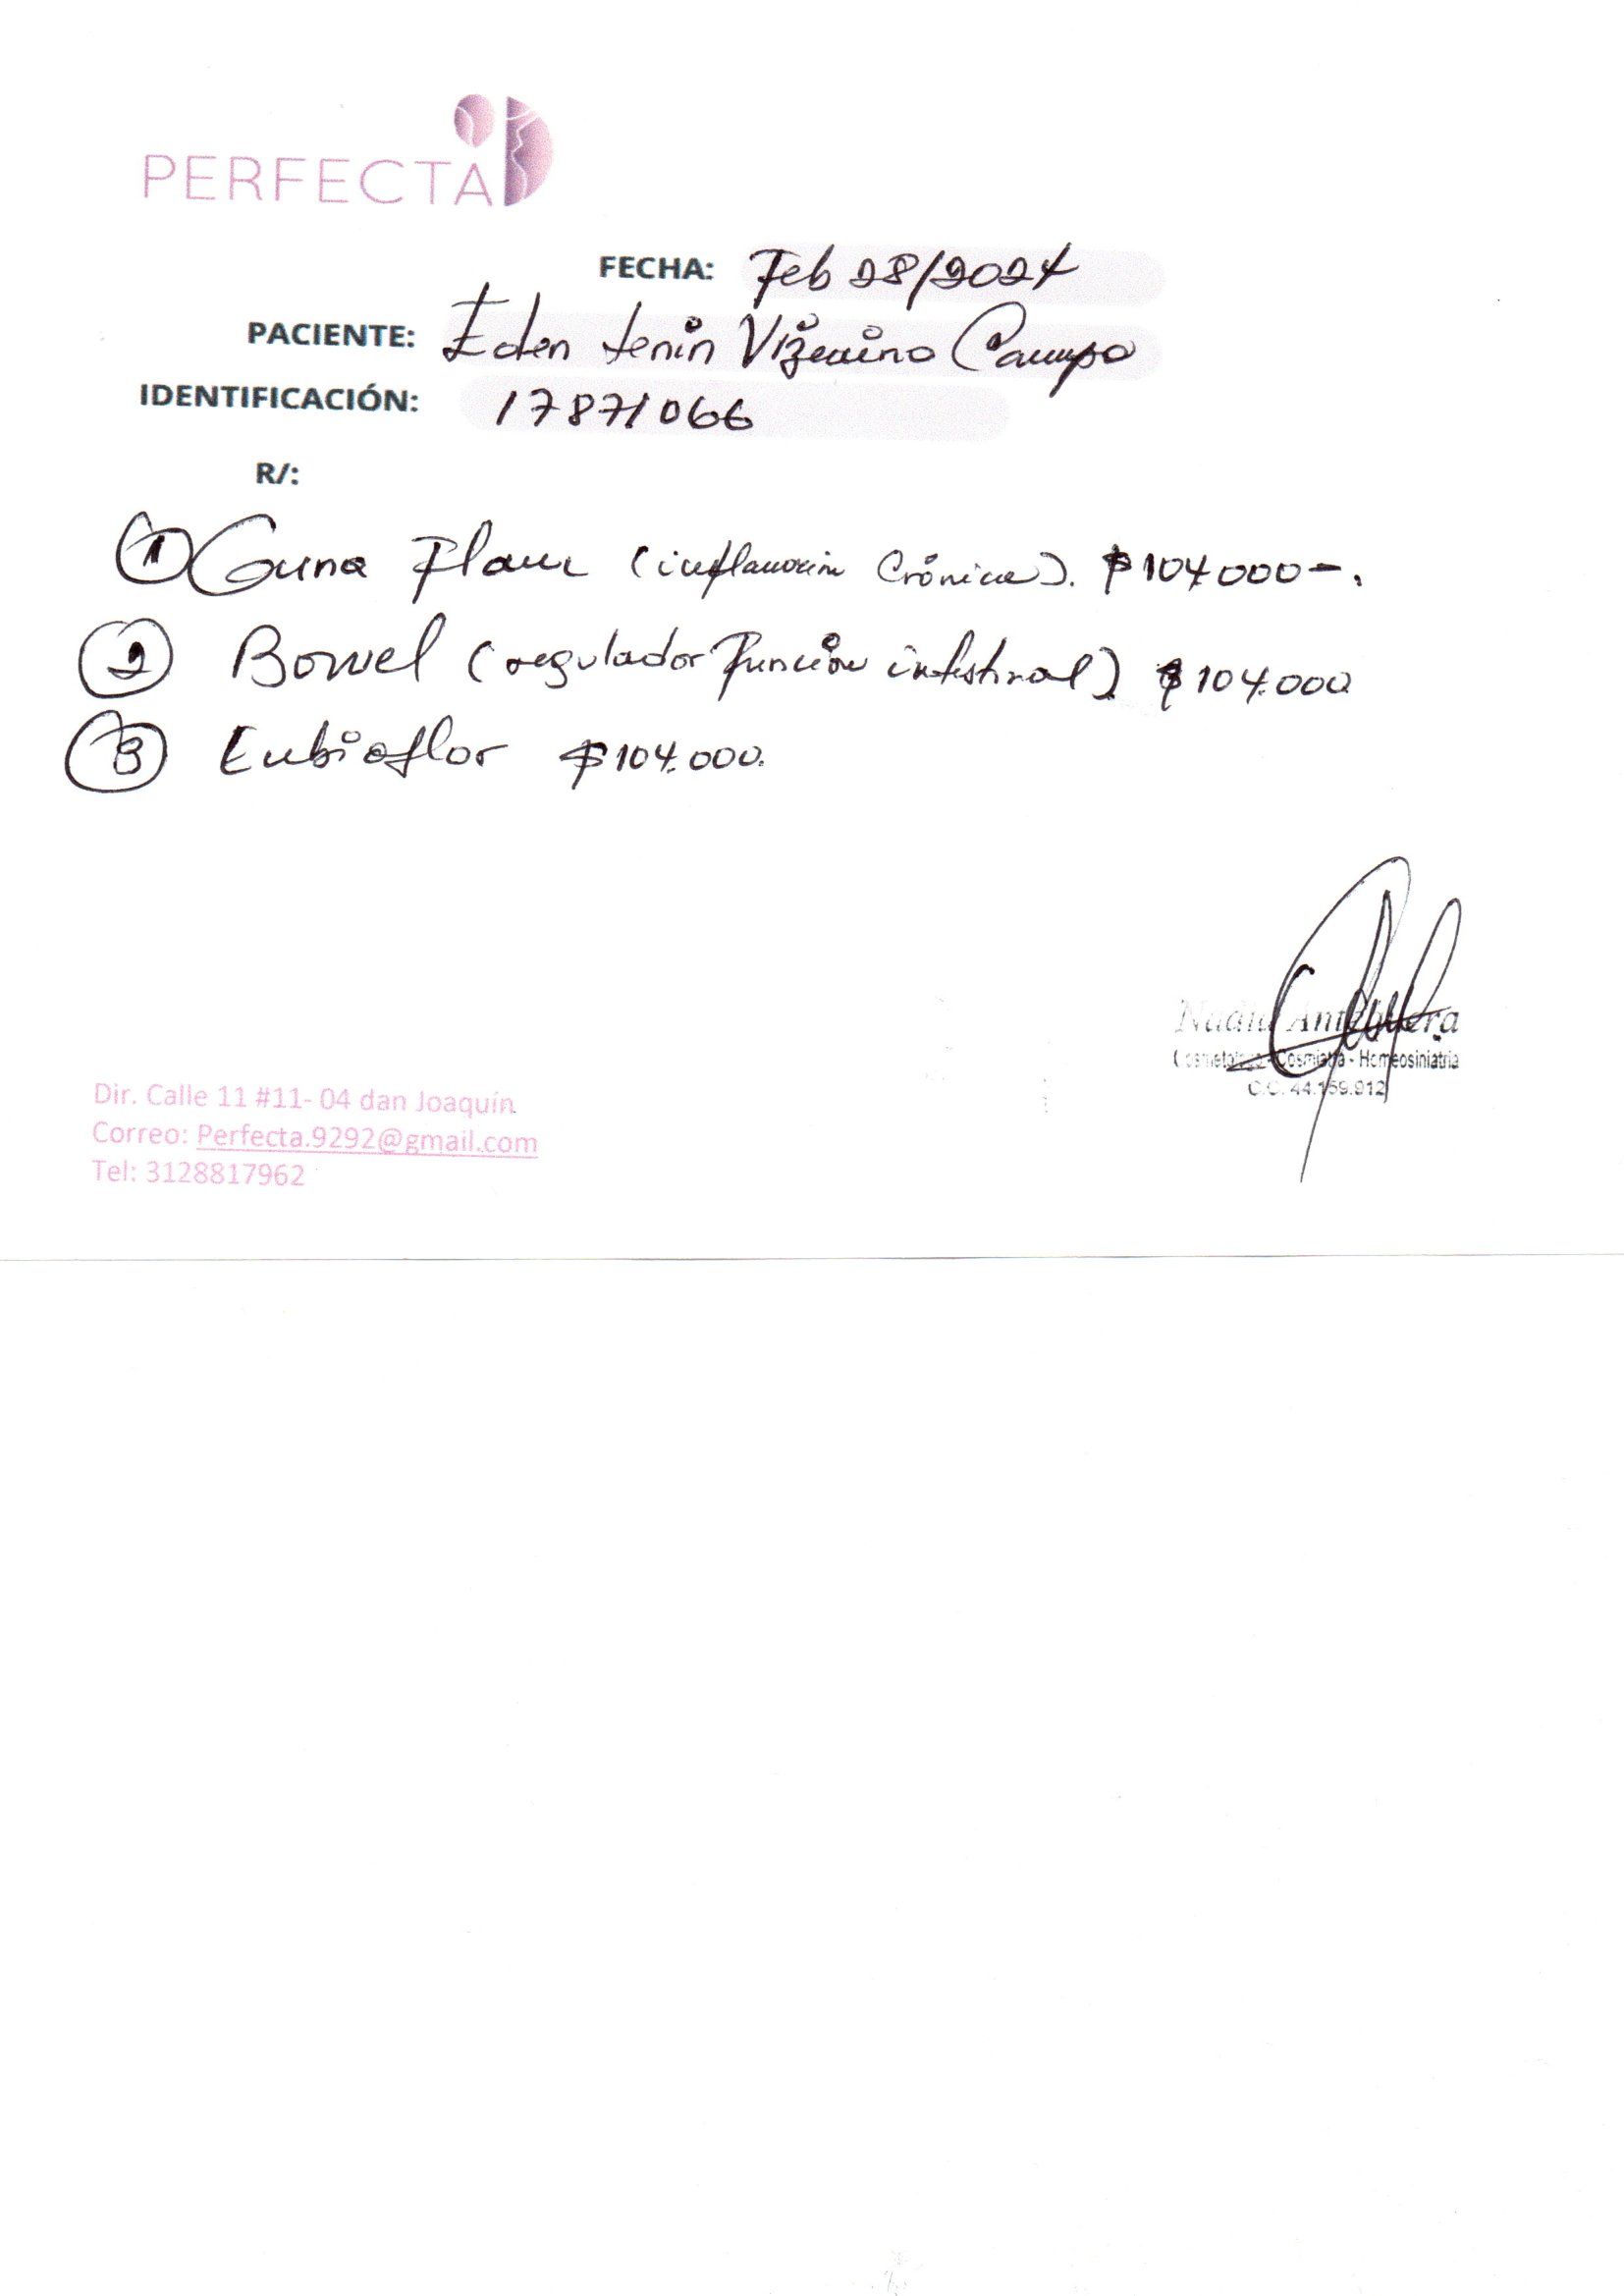 PERFECTA
FECHA: Feb 28/2024
PACIENTE: Eden Lenin Vizcaino Campo
IDENTIFICACIÓN: 17871066
R/:
1 Guna Flam (inflamación Crónica). $104.000-.
2 Bowel (regulador Función intestinal) $104.000
3 Eubioflor $104.000.
Nadia Antequera
Cosmetologa - Cosmiatra - Homeosiniatria
C.C. 44.159.912
Dir. Calle 11 #11- 04 dan Joaquín
Correo: Perfecta.9292@gmail.com
Tel: 3128817962